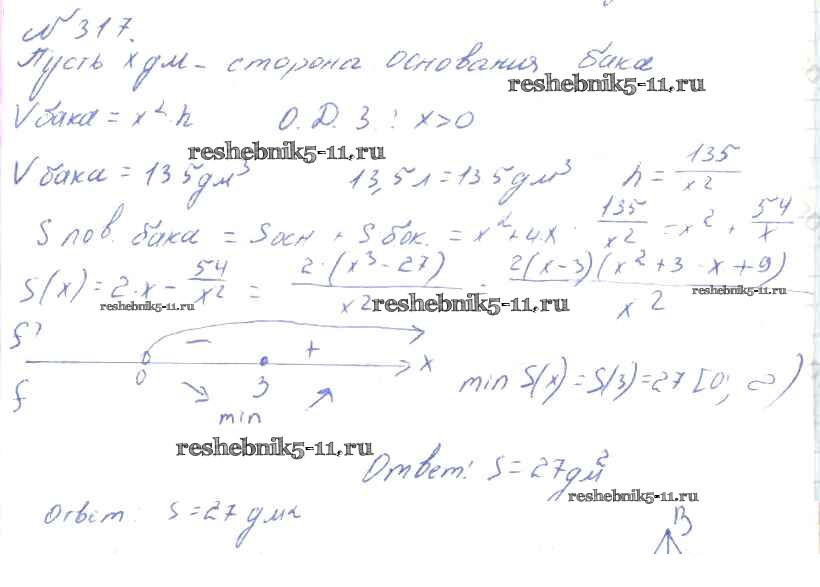 № 317.
Пусть x дм - сторона основания бака
reshebnik5-11.ru
V бака = x²·h О.Д.З: x>0
reshebnik5-11.ru
V бака = 135дм³ 13,5л=135дм³ h = 135/x²
S пов. бака = Sосн + S бок. = x²+4x · 135/x² = x² + 54/x
S(x) = 2·x - 54/x² = 2·(x³-27)/x² · 2(x-3)(x²+3·x+9)/x²
reshebnik5-11.ru reshebnik5-11.ru reshebnik5-11.ru
f' - +
0 3 x
f min
min S(x) = S(3) = 27 [0; ∞)
reshebnik5-11.ru
Ответ: S=27дм²
reshebnik5-11.ru
Ответ: S=27 дм²
B